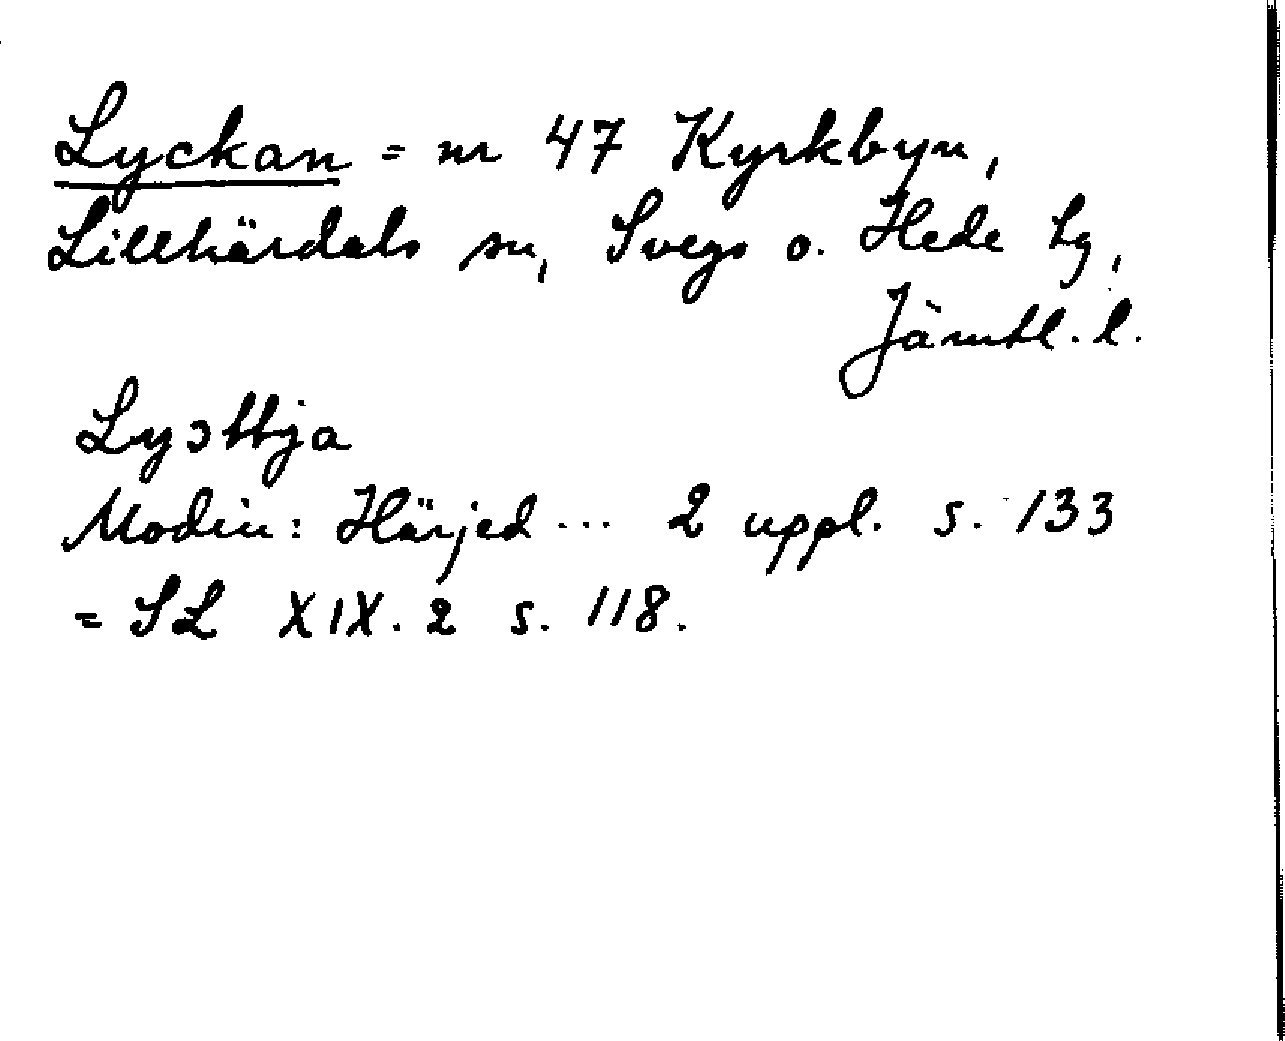 Lyckan = nr 47 Kyrkbyn,
Lillhärdals sn, Svegs o. Hede tg,
Jämtl. l.
Lyɔttja
Modin: Härjed... 2 uppl. s. 133
= SL XIX. 2 s. 118.